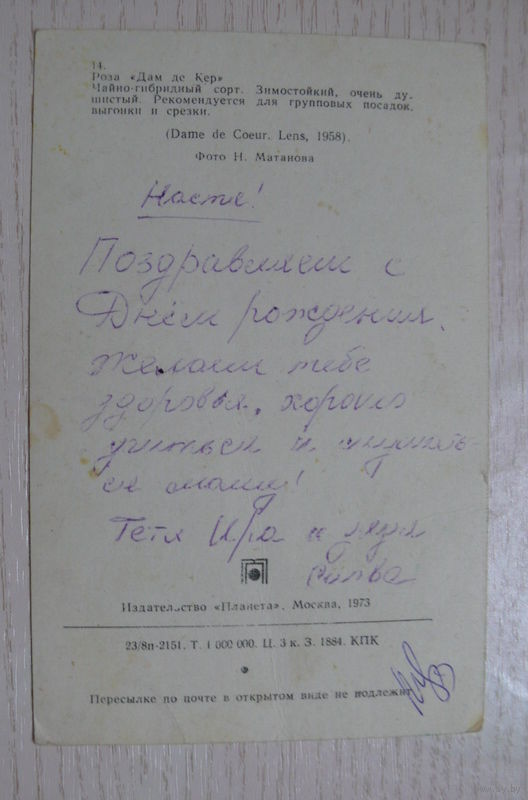 14.
Роза «Дам де Кер»
Чайно-гибридный сорт. Зимостойкий, очень ду-
шистый. Рекомендуется для групповых посадок,
выгонки и срезки.
(Dame de Coeur. Lens, 1958).
Фото Н. Матанова
Настя!
Поздравляем с
Днём рождения.
Желаем тебе
здоровья, хорошо
учиться и слушать-
ся маму!
Тётя Ира и дядя
Издательство «Планета». Москва, 1973
23/8п-2151. Т. 1 000 000. Ц. 3 к. З. 1884. КПК
Пересылке по почте в открытом виде не подлежит